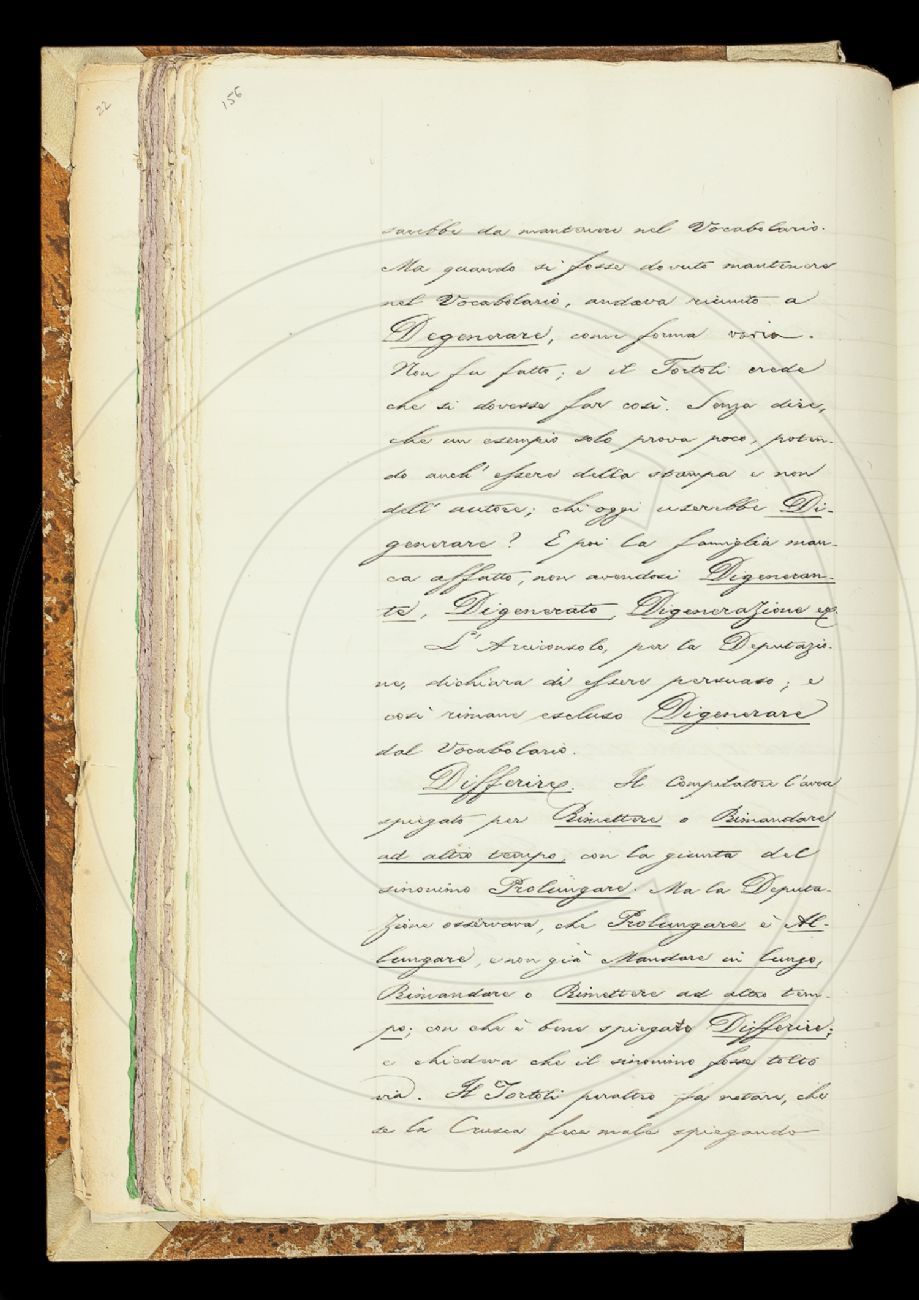 22
156
sarebbe da mantenere nel Vocabolario.
Ma quando si fosse dovuto mantenere
nel Vocabolario, andava riunito a
Degenerare, come forma varia.
Non fu fatto; e il Tortoli crede
che si dovesse far così. Senza dire,
che un esempio solo prova poco, poten-
do anch' essere della stampa e non
dell' autore; chi oggi userebbe Di-
generare? E poi la famiglia man-
ca affatto, non avendosi Digeneran-
te, Digenerato, Digenerazione ec.
L'Arciconsolo, per la Deputazio-
ne, dichiara di essere persuaso; e
così rimane escluso Digenerare
dal Vocabolario.
Differire. Il Compilatore l'avea
spiegato per Rimettere o Rimandare
ad altro tempo, con la giunta del
sinonimo Prolungare. Ma la Deputa-
zione osservava, che Prolungare è Al-
lungare, e non già Mandare in lungo,
Rimandare o Rimettere ad altro tem-
po; con che è bene spiegato Differire;
e chiedeva che il sinonimo fosse tolto
via. Il Tortoli peraltro fa notare, che
se la Crusca fece male spiegando